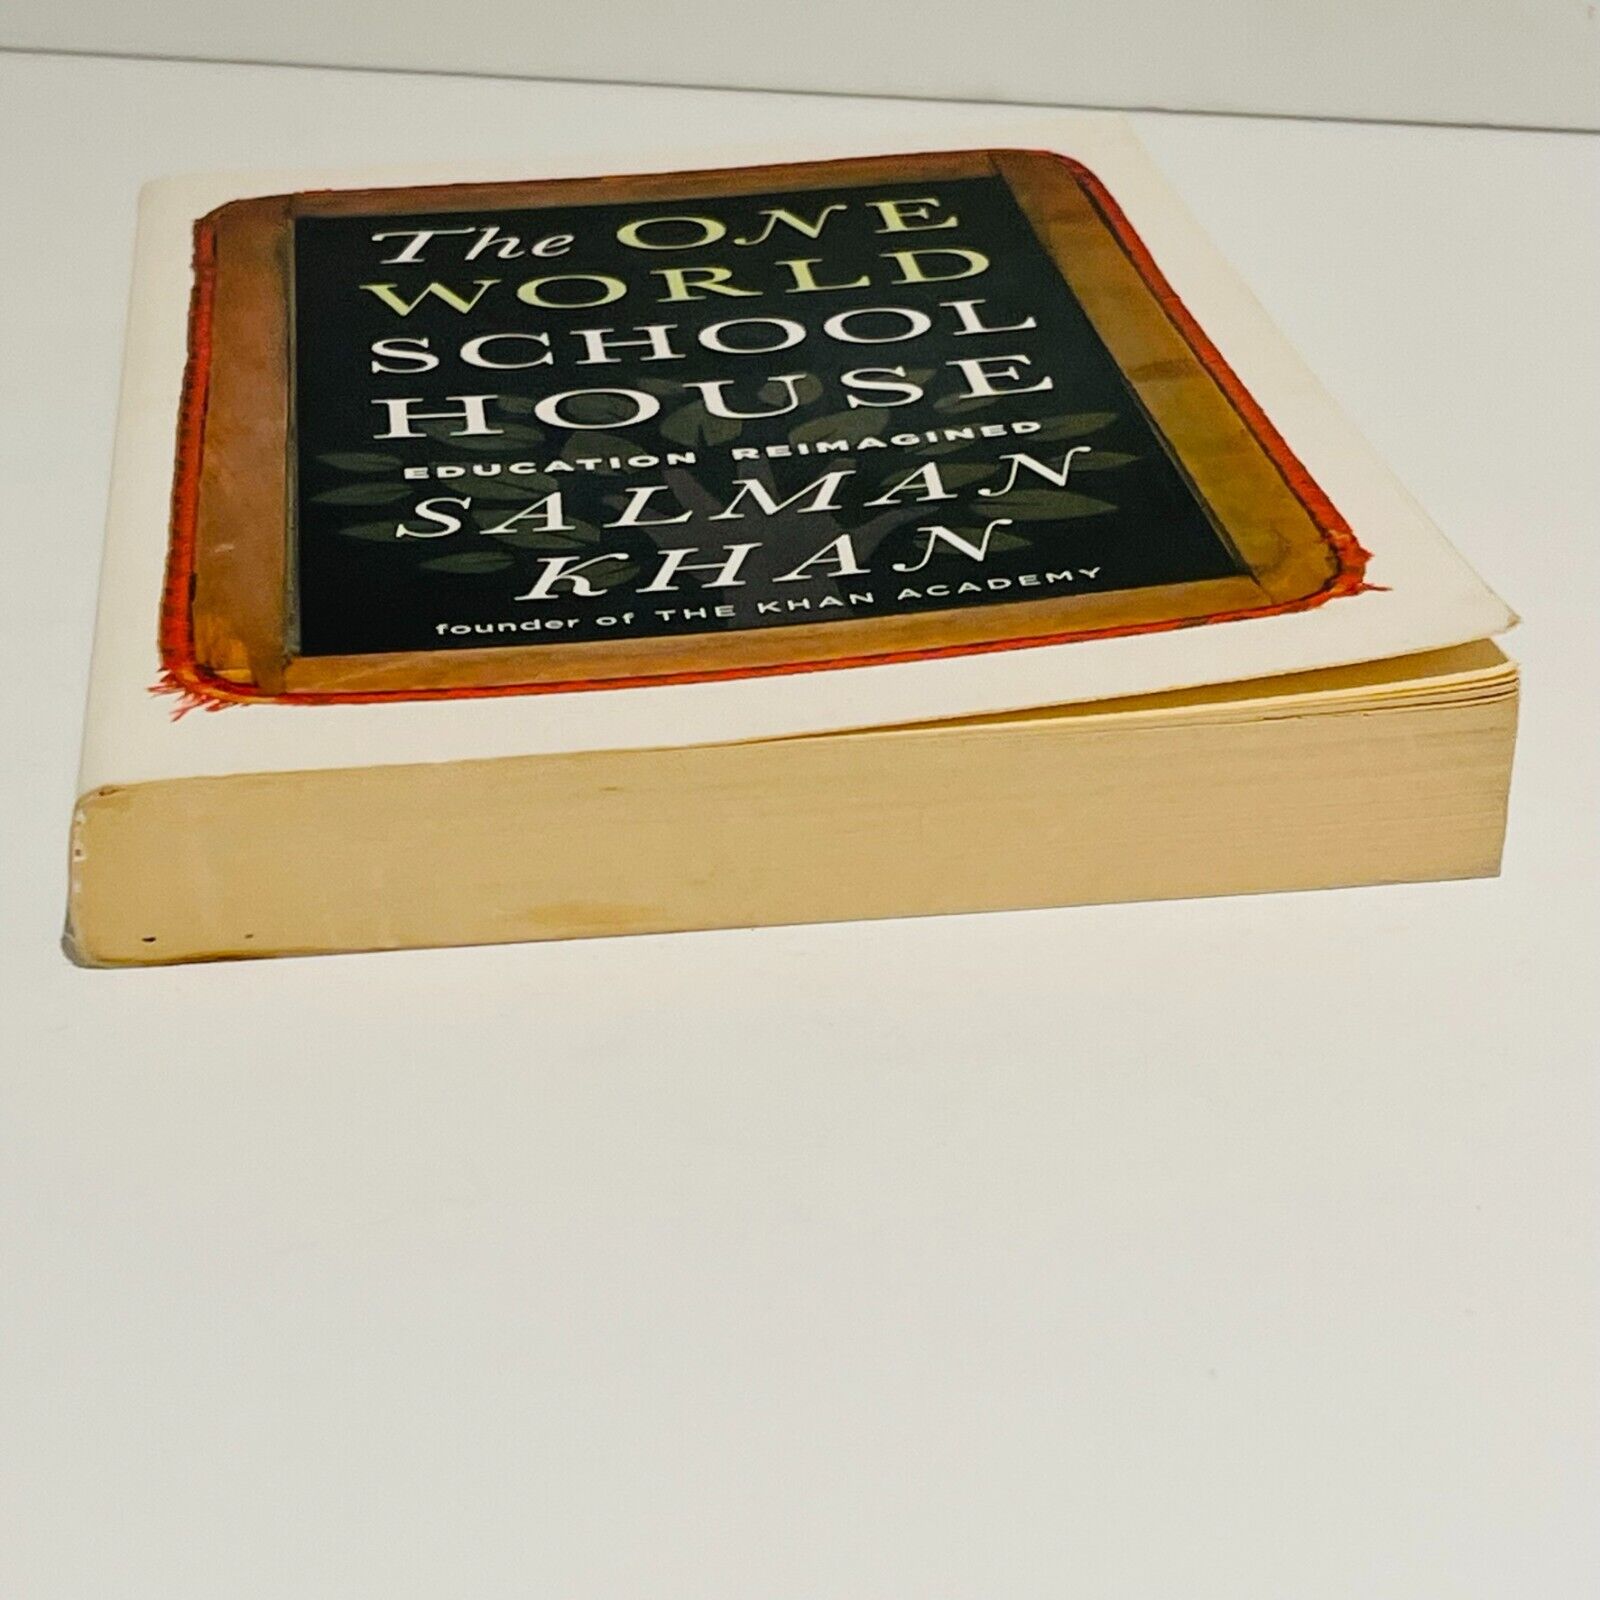 The ONE
WORLD
SCHOOL
HOUSE
EDUCATION REIMAGINED
SALMAN
KHAN
founder of THE KHAN ACADEMY